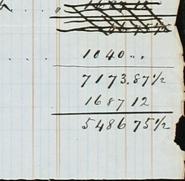 1040...
7173.87½
1687 12
5486 75½